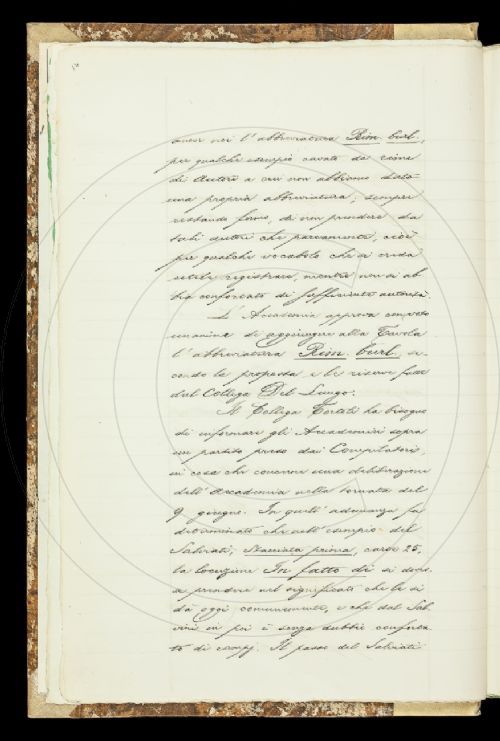 aver noi l'abbreviatura Rim. burl.,
per qualche esempio cavato da rime
di Autori a cui non abbiamo dato
una propria abbreviatura; sempre
restando fermo, di non prendere da
tali autori che parcamente, cioè
per qualche vocabolo che si creda
utile registrare, mentre non si ab
bia confortato di sufficiente autorità.
L'Accademia approva con voto
unanime di aggiungere alla Tavola
l'abbreviatura Rim. burl. se-
condo la proposta e le riserve fatte
dal Collega Del Lungo.
Il Collega Tortoli ha bisogno
di informare gli Accademici sopra
un partito preso dai Compilatori,
in cosa che concerne una deliberazione
dell'Accademia nella tornata del
9 giugno. In quell'adunanza fu
determinato che nell'esempio del
Salviati, Stacciata prima, carte 25,
la locuzione In fatto di si doves
se prendere nel significato che le si
dà oggi comunemente, e che dal Sal
vini in poi è senza dubbio conforta
to di esempj. Il passo del Salviati